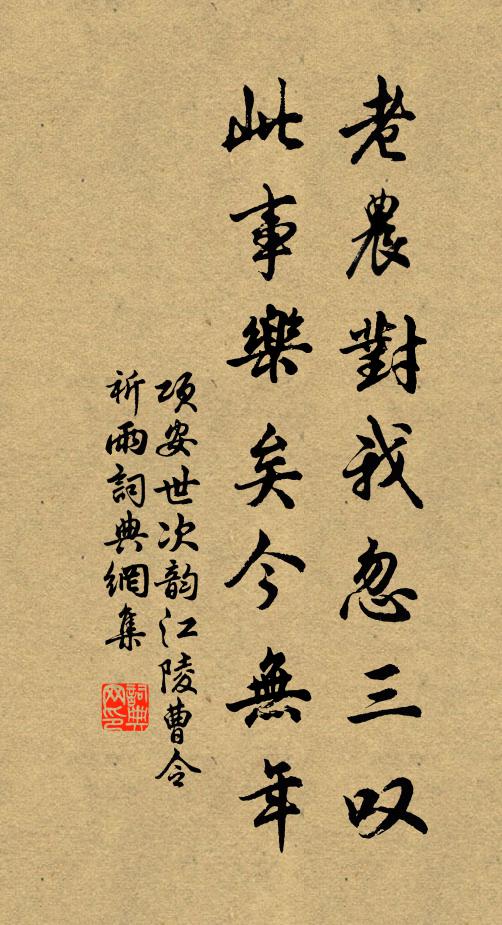 老農對我忽三叹
此事樂矣今無年
项安世次韵江陵曹令
祈雨詞典網集
詞典
网印